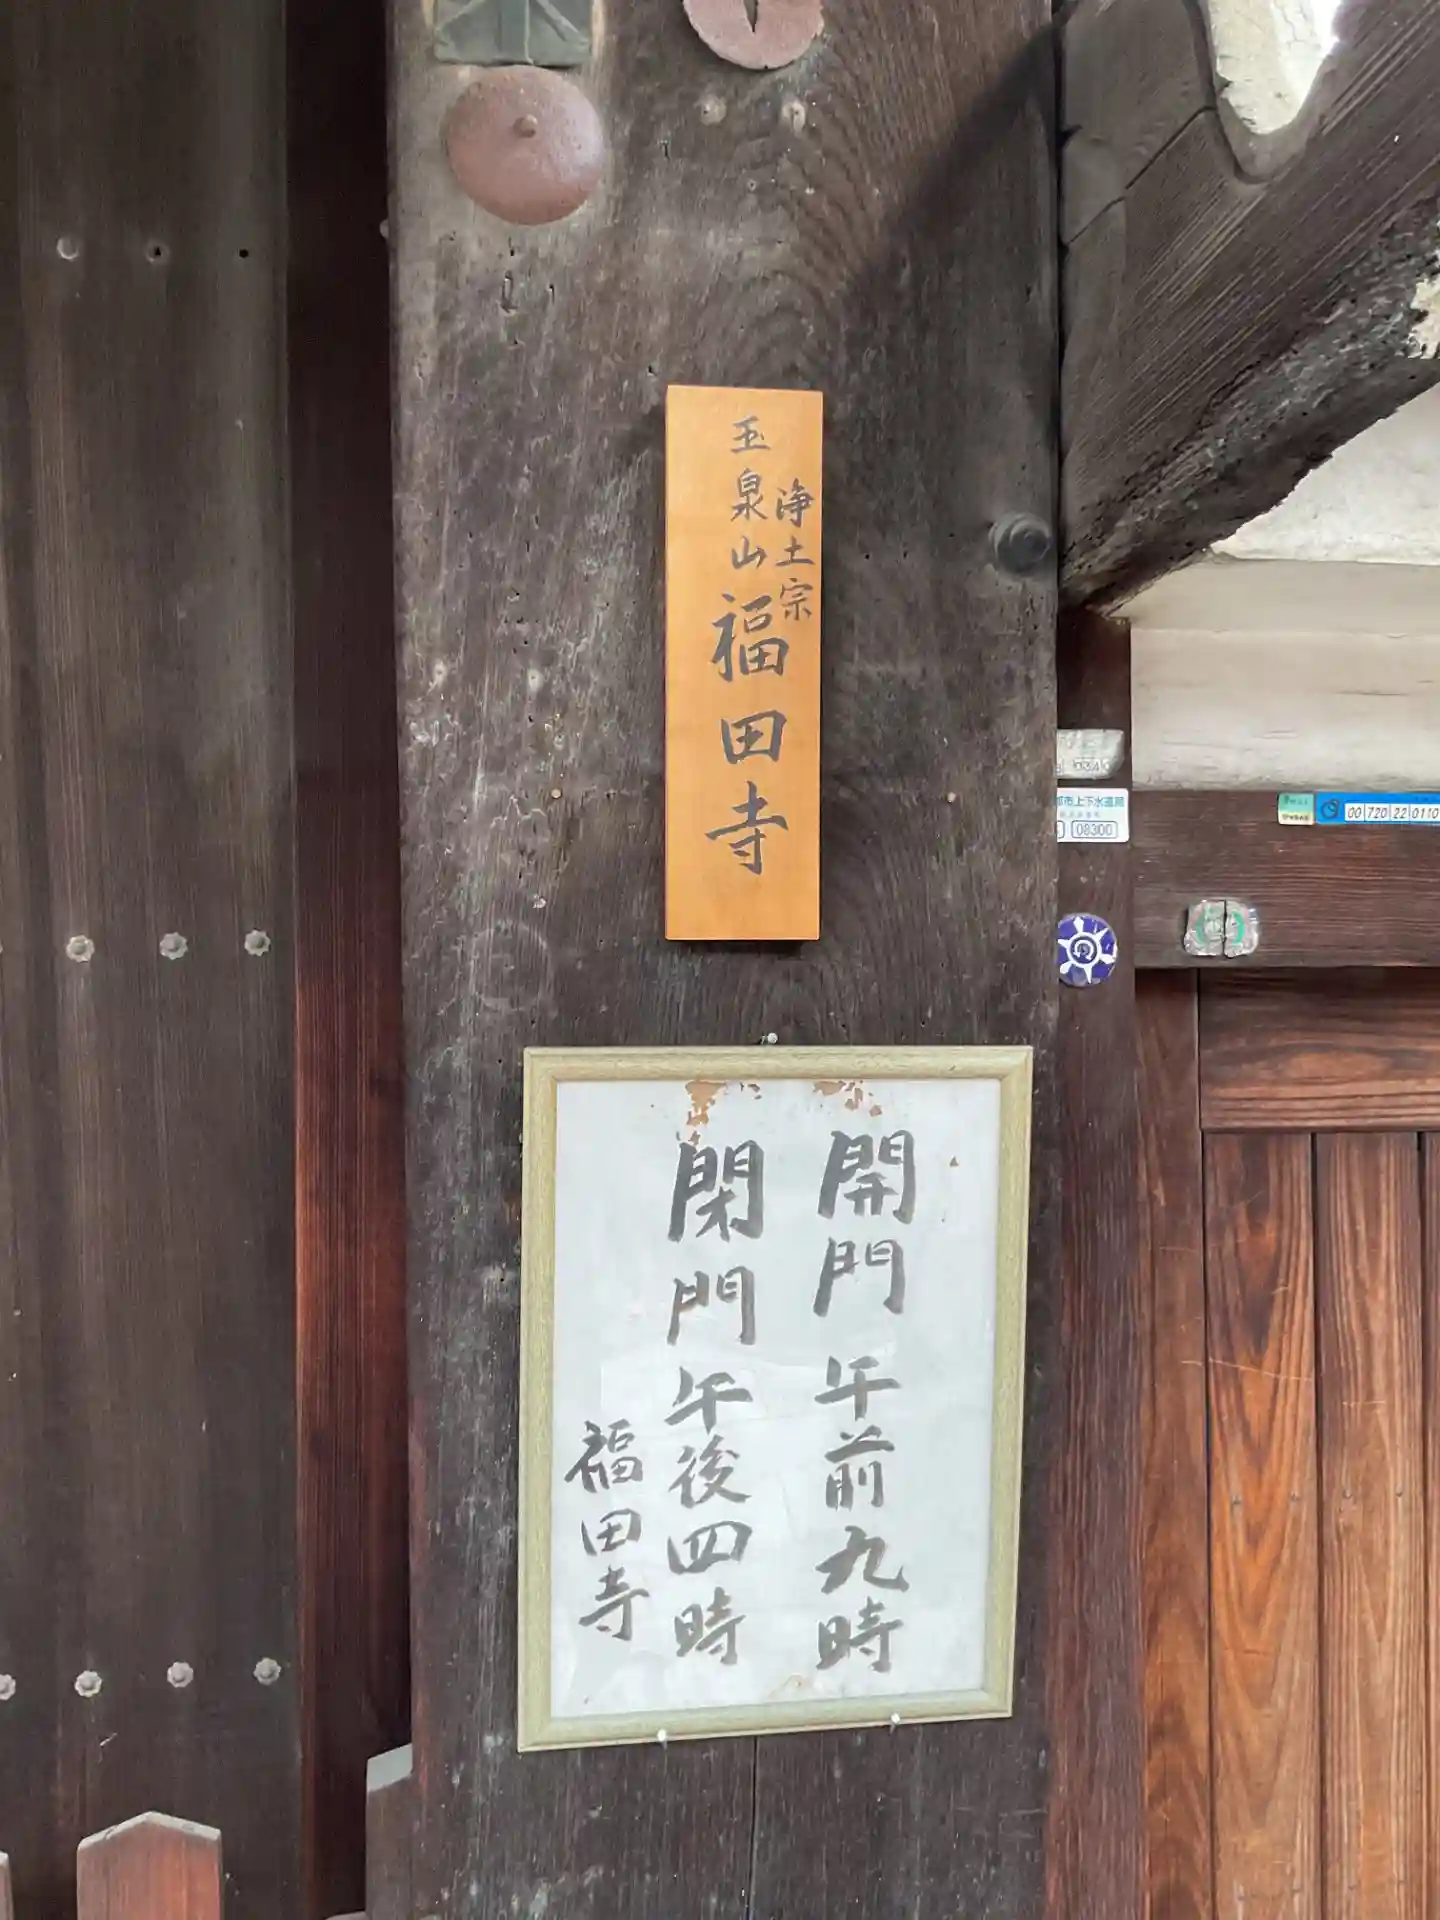 浄土宗
玉泉山 福田寺
開門 午前九時
閉門 午後四時
福田寺
市上下水道局
08300
00 720 22 0110